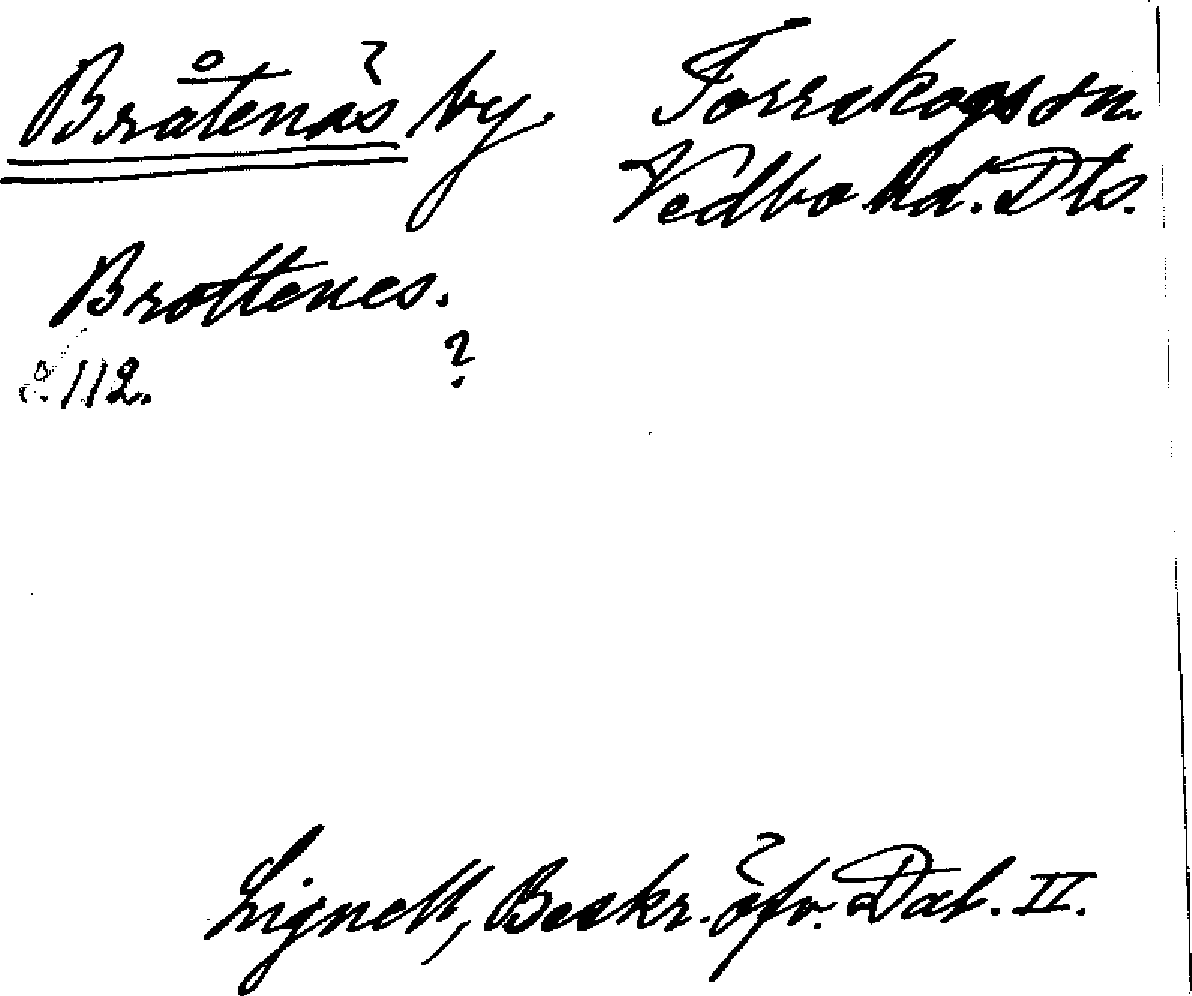 Bråtenäs by. Torrskogs sn.
Vedbo hd. Dls.
Brottenes.
s. 112. ?
Lignell, Beskr. öfv. Dal. II.